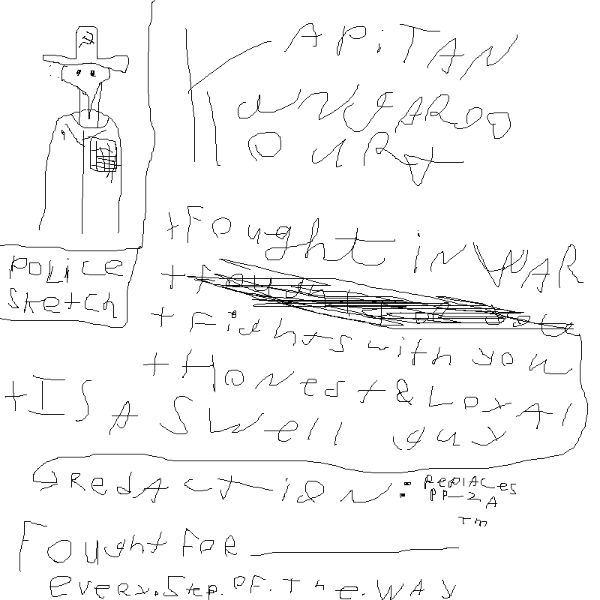 KAPiTAN
anGAROO
OURt
+Fought in WAR
+ Fights with you
+ Honest & Loyal
+ IS A Swell guy
Police
Sketch
RedACtiON: Replaces
PP-2A
TM
Fought For ____________
every.Step.OF.The.WAY